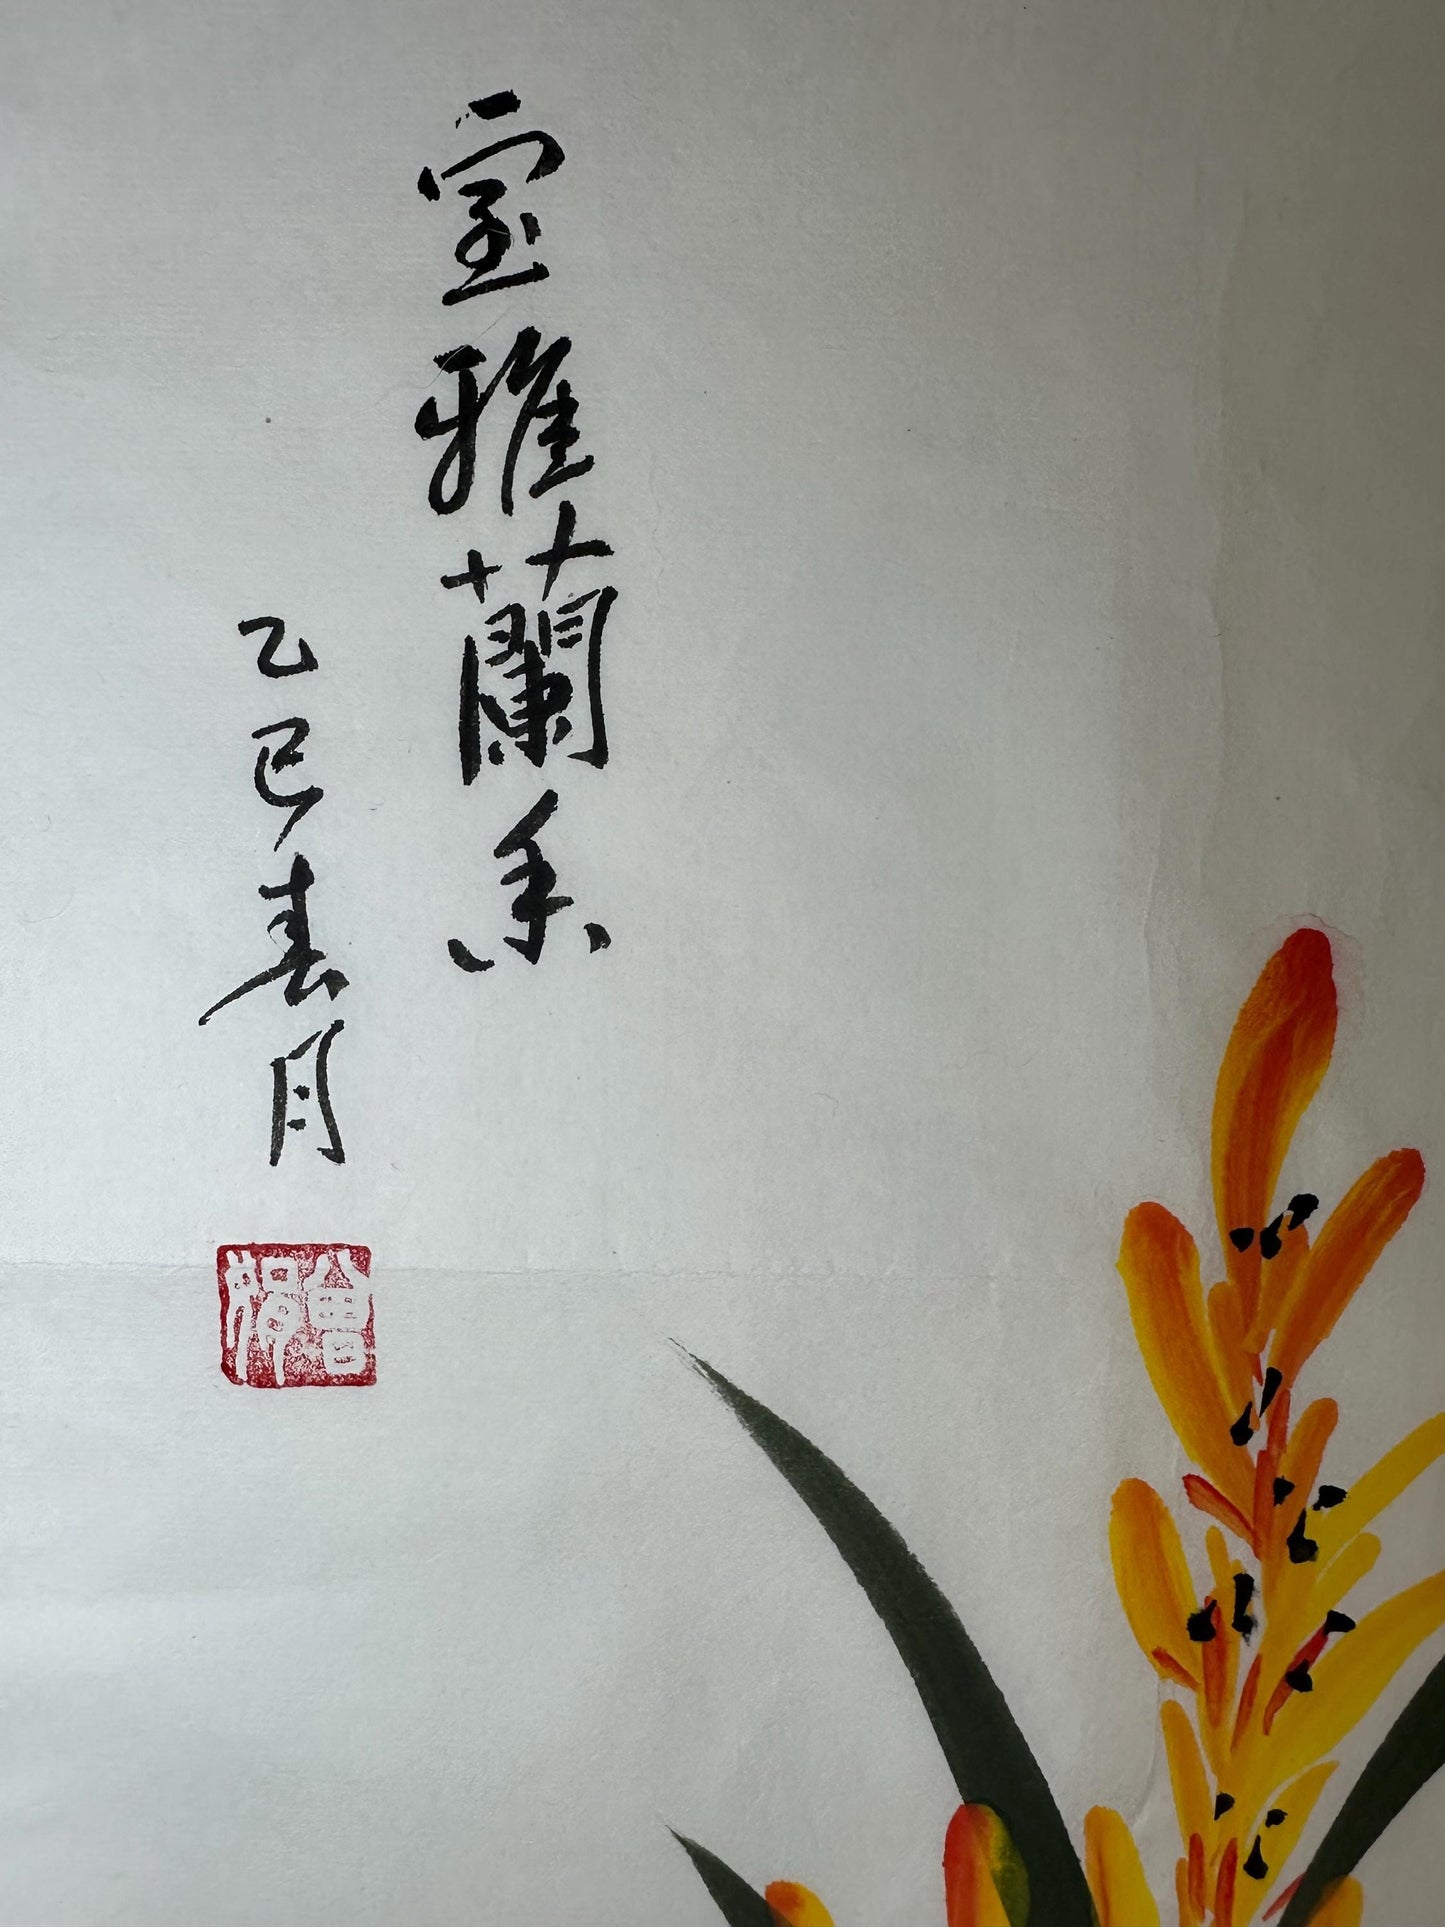 室雅蘭香
乙巳春月